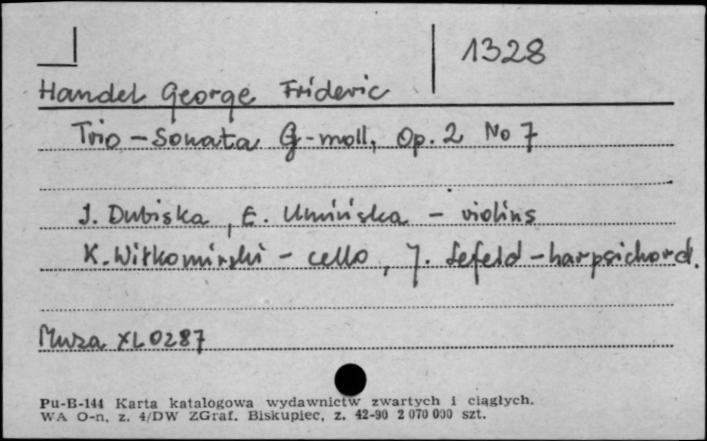 1328
Handel George Frideric
Trio - Sonata G-moll, Op. 2 No 7
I. Dubiska, E. Umińska - violins
K. Wiłkomirski - cello, J. Lefeld - harpsichord.
Muza XL 0287
Pu-B-144 Karta katalogowa wydawnictw zwartych i ciągłych.
WA O-n, z. 4/DW ZGraf. Biskupiec, z. 42-90 2 070 000 szt.